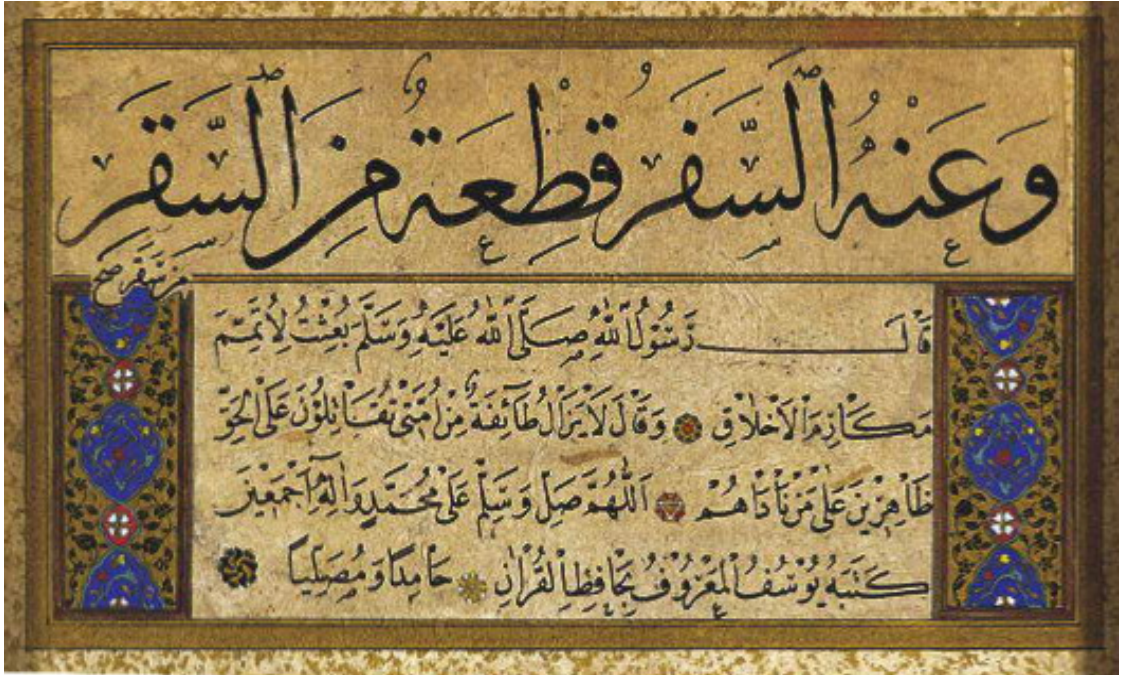 وَعَنْهُ ٱلسَّفَرُ قِطْعَةٌ مِنَ ٱلسَّقَرِ
مِنْ سَقَر صح
قَالَ رَسُوْلُ اللّٰهِ صَلَّى اللّٰهُ عَلَيْهِ وَسَلَّمَ بُعِثْتُ لِأُتَمِّمَ
مَكَارِمَ الْأَخْلَاقِ وَقَالَ لَا يَزَالُ طَائِفَةٌ مِنْ أُمَّتِيْ يُقَاتِلُوْنَ عَلَى الْحَقِّ
ظَاهِرِيْنَ عَلَى مَنْ نَاوَاهُمْ اَللّٰهُمَّ صَلِّ وَسَلِّمْ عَلَى مُحَمَّدٍ وَاٰلِهِ أَجْمَعِيْنَ
كَتَبَهُ يُوْسُفُ الْمَعْرُوْفُ بِحَافِظِ الْقُرْاٰنِ حَامِدًا وَمُصَلِّيًا